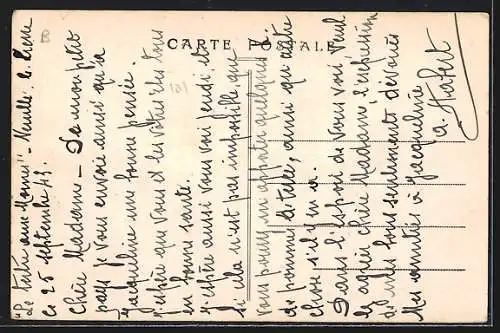 CARTE POSTALE
"Le tertre aux Moines" - Neuillé - le Lierre
Ce 25 septembre 43.
Chère Madame - De mon petit
pays je vous envoie ainsi qu'à
Jacqueline une bonne pensée.
J'espère que vous et les vôtres êtes tous
en bonne santé.
J'espère aussi vous voir jeudi et
si cela n'est pas impossible que
vous pourrez m'apporter quelques k.
de pommes de terre, ainsi qu'autre
chose s'il y en a.
Dans l'espoir de vous voir, veuillez
agréer chère Madame l'expression
de mes bons sentiments dévoués
Mes amitiés à Jacqueline